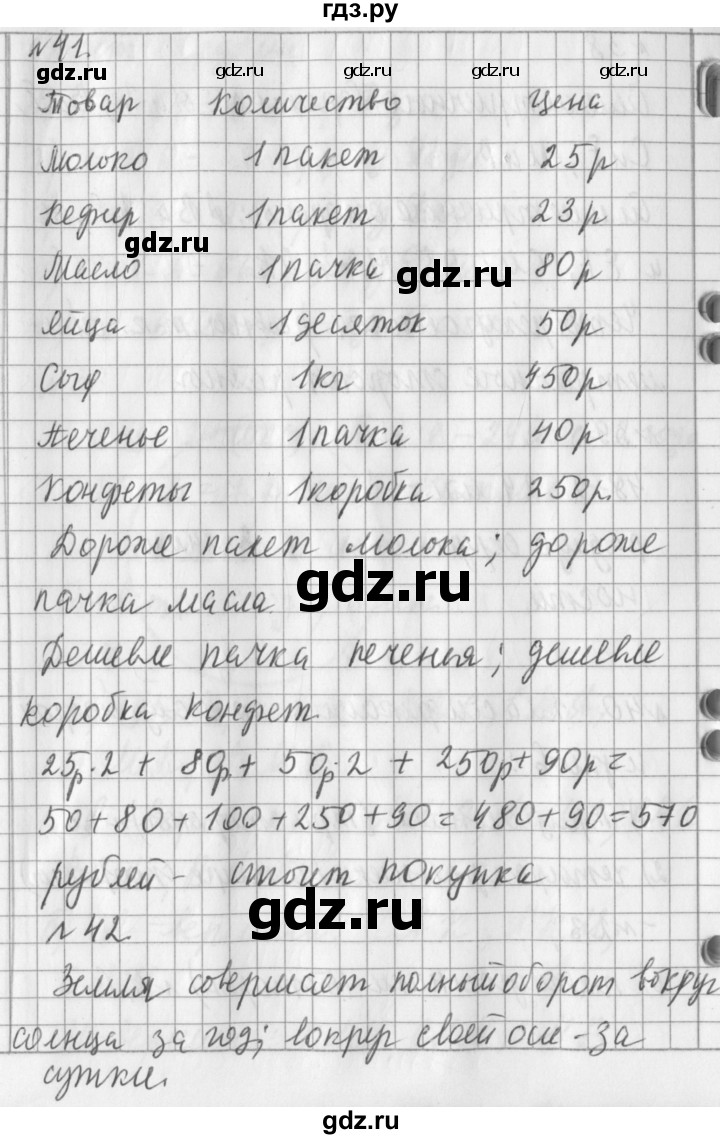 гдз.ру
№41.
gdz.ru gdz.ru gdz.ru gdz.ru
Товар Количество Цена
Молоко 1 пакет 25р
Кефир 1 пакет 23р
gdz.ru
Масло 1 пачка 80р
gdz.ru
Яйца 1 десяток 50р
Сыр 1 кг 450р
Печенье 1 пачка 40р
Конфеты 1 коробка 250р.
Дороже пакет молока; дороже
gdz.ru
пачка масла
Дешевле пачка печенья; дешевле
коробка конфет.
25р·2 + 80р+ 50р·2 + 250р+90р=
50+80+100+250+90=480+90=570
рублей- стоит покупка
gdz.ru
№42.
Земля совершает полный оборот вокруг
солнца за год; вокруг своей оси-за
сутки.
gdz.ru